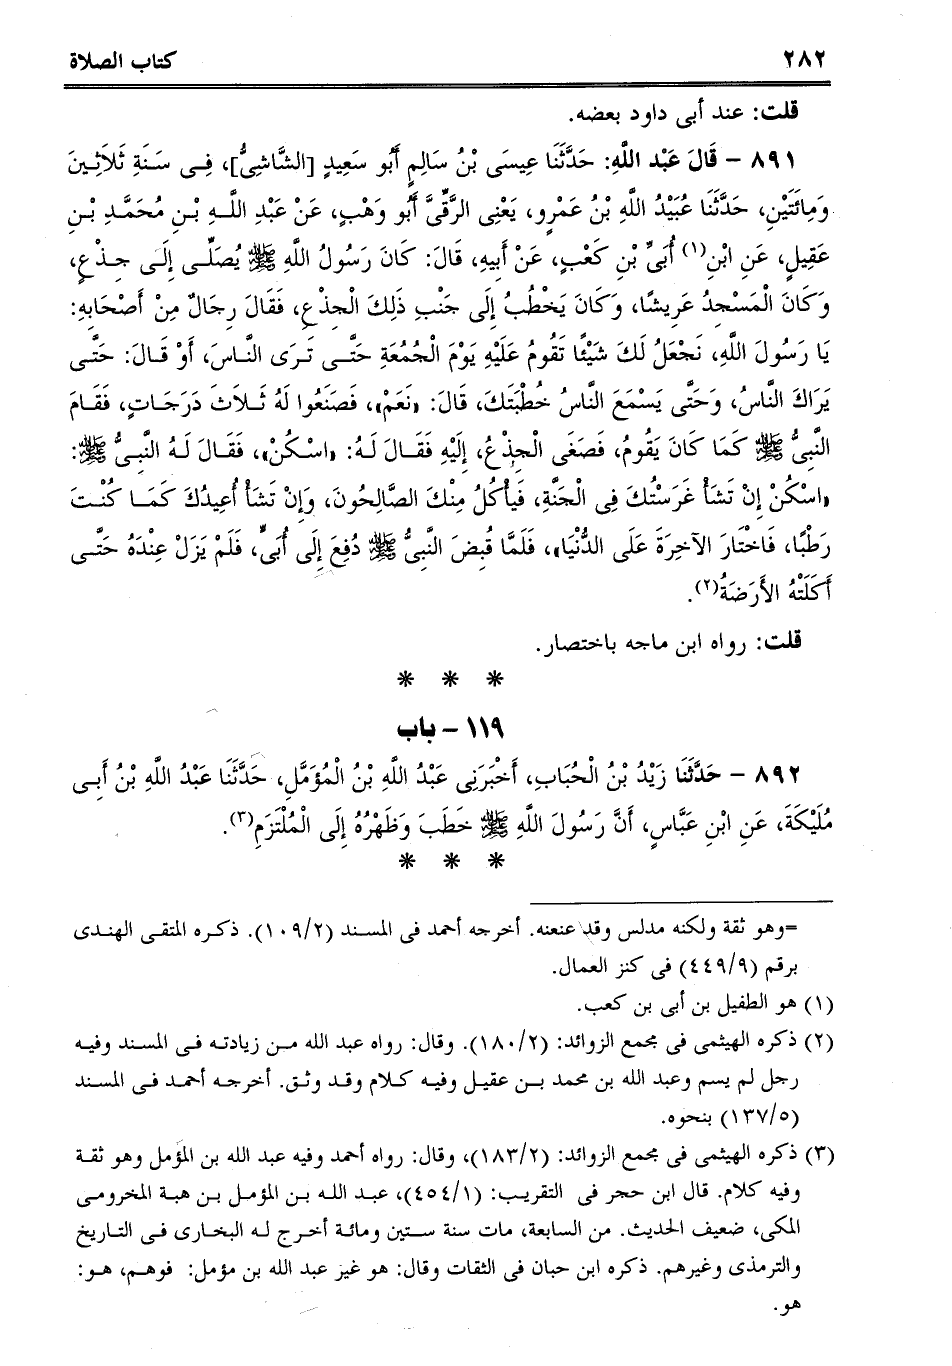 ٢٨٢ كتاب الصلاة
قلت: عند أبى داود بعضه.
٨٩١ – قَالَ عَبْد اللَّهِ: حَدَّثَنَا عِيسَى بْنُ سَالِمٍ أَبُو سَعِيدٍ [الشَّاشِىُّ]، فِـى سَـنَةِ ثَلاَثِـينَ
وَمِائَتَيْنِ، حَدَّثَنَا عُبَيْدُ اللَّهِ بْنُ عَمْرٍو، يَعْنِى الرَّقِّىَّ أَبُو وَهْبٍ، عَنْ عَبْدِ اللَّـهِ بْـنِ مُحَمَّـدِ بْـنِ
عَقِيلٍ، عَنِ ابْنِ(١) أُبَىِّ بْنِ كَعْبٍ، عَنْ أَبِيهِ، قَالَ: كَانَ رَسُولُ اللَّهِ ﷺ يُصَلِّـى إِلَـى جِـذْعٍ،
وَكَانَ الْمَسْجِدُ عَرِيشًا، وَكَانَ يَخْطُبُ إِلَى جَنْبِ ذَلِكَ الْجِذْعِ، فَقَالَ رِجَالٌ مِنْ أَصْحَابِهِ:
يَا رَسُولَ اللَّهِ، نَجْعَلُ لَكَ شَيْئًا تَقُومُ عَلَيْهِ يَوْمَ الْجُمُعَةِ حَتَّـى تَـرَى النَّـاسَ، أَوْ قَـالَ: حَتَّـى
يَرَاكَ النَّاسُ، وَحَتَّى يَسْمَعَ النَّاسُ خُطْبَتَكَ، قَالَ: «نَعَمْ»، فَصَنَعُوا لَهُ ثَـلاثَ دَرَجَـاتٍ، فَقَـامَ
النَّبِىُّ ﷺ كَمَا كَانَ يَقُومُ، فَصَغَى الْجِذْعُ، إِلَيْهِ فَقَـالَ لَـهُ: «اسْـكُنْ»، فَقَـالَ لَـهُ النَّبِـىُّ ﷺ:
«اسْكُنْ إِنْ تَشَأْ غَرَسْتُكَ فِى الْجَنَّةِ، فَيَأْكُلُ مِنْكَ الصَّالِحُونَ، وَإِنْ تَشَأْ أُعِيدُكَ كَمَـا كُنْـتَ
رَطْبًا، فَاخْتَارَ الآخِرَةَ عَلَى الدُّنْيَا»، فَلَمَّا قُبِضَ النَّبِىُّ ﷺ دُفِعَ إِلَى أُبَىٍّ، فَلَمْ يَزَلْ عِنْدَهُ حَتَّـى
أَكَلَتْهُ الأَرَضَةُ(٢).
قلت: رواه ابن ماجه باختصار.
* * *
١١٩ – باب
٨٩٢ – حَدَّثَنَا زَيْدُ بْنُ الْحُبَابِ، أَخْبَرَنِى عَبْدُ اللَّهِ بْنُ الْمُؤَمَّلِ، حَدَّثَنَا عَبْدُ اللَّهِ بْنُ أَبِـى
مُلَيْكَةَ، عَنِ ابْنِ عَبَّاسٍ، أَنَّ رَسُولَ اللَّهِ ﷺ خَطَبَ وَظَهْرُهُ إِلَى الْمُلْتَزَمِ(٣).
* * *
=وهو ثقة ولكنه مدلس وقد عنعنه. أخرجه أحمد فى المسند (١٠٩/٢). ذكـره المتقـى الهنـدى
برقم (٤٤٩/٩) فى كنز العمال.
(١) هو الطفيل بن أبى بن كعب.
(٢) ذكره الهيثمى فى مجمع الزوائد: (١٨٠/٢). وقال: رواه عبد الله مـن زيادتـه فـى المسـند وفيـه
رجل لم يسم وعبد الله بن محمد بـن عقيـل وفيـه كـلام وقـد وثـق. أخرجـه أحمـد فـى المسـند
(١٣٧/٥) بنحوه.
(٣) ذكره الهيثمى فى مجمع الزوائد: (١٨٣/٢)، وقال: رواه أحمد وفيه عبد الله بن المؤمل وهو ثقـة
وفيه كلام. قال ابن حجر فى التقريب: (٤٥٤/١)، عبـد اللـه بـن المؤمـل بـن هبـة المخرومـى
المكى، ضعيف الحديث. من السابعة، مات سنة ستين ومائـة أخـرج لـه البخـارى فـى التـاريخ
والترمذى وغيرهم. ذكره ابن حبان فى الثقات وقال: هو غير عبد الله بن مؤمل: فوهـم، هـو:
هو.